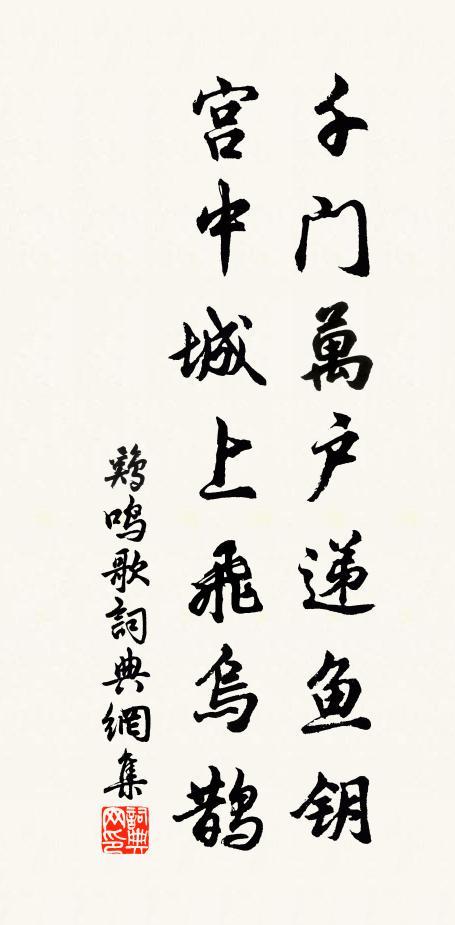 千门萬户遞鱼钥
宫中城上飛烏鵲
鷄鳴歌詞典網集
詞典网印